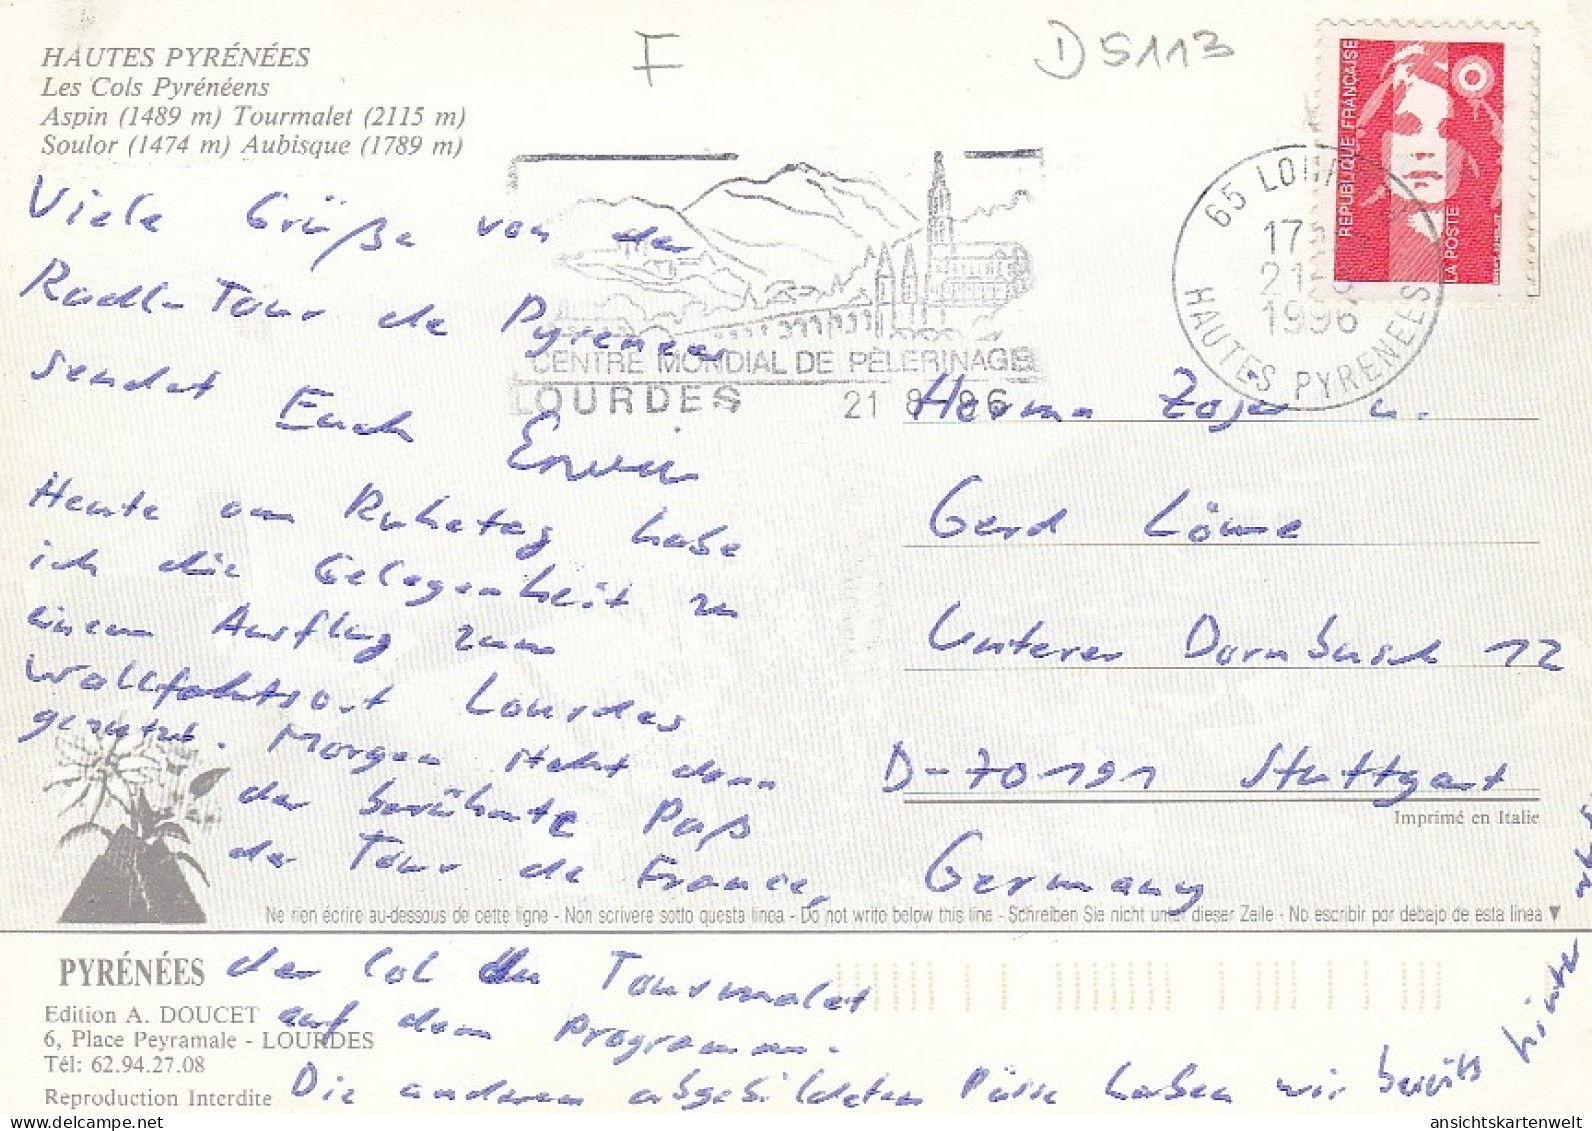 HAUTES PYRÉNÉES
Les Cols Pyrénéens
Aspin (1489 m) Tourmalet (2115 m)
Soulor (1474 m) Aubisque (1789 m)
F
D 5113
REPUBLIQUE FRANÇAISE
LA POSTE
65 LOURDES
17
21
1996
HAUTES PYRENEES
CENTRE MONDIAL DE PÈLERINAGE
LOURDES 21 8 96
Viele Grüße von der
Radl-Tour de Pyrenéen
sendet Euch Erwin
Heute am Ruhetag habe
ich die Gelegenheit zu
einem Ausflug zum
Wallfahrtsort Lourdes
genutzt. Morgen steht dann
der berühmte Paß
der Tour de France,
der Col du Tourmalet
auf dem Programm.
Die anderen abgebildeten Pässe haben wir bereits hinter
Herrn u.
Gerd Löwe
Unterer Dornbusch 12
D-70191 Stuttgart
Germany
Imprimé en Italie
Ne rien écrire au-dessous de cette ligne - Non scrivere sotto questa linea - Do not write below this line - Schreiben Sie nicht unter dieser Zeile - No escribir por debajo de esta linea ▼
PYRÉNÉES
Edition A. DOUCET
6, Place Peyramale - LOURDES
Tél: 62.94.27.08
Reproduction Interdite
ansichtskartenwelt